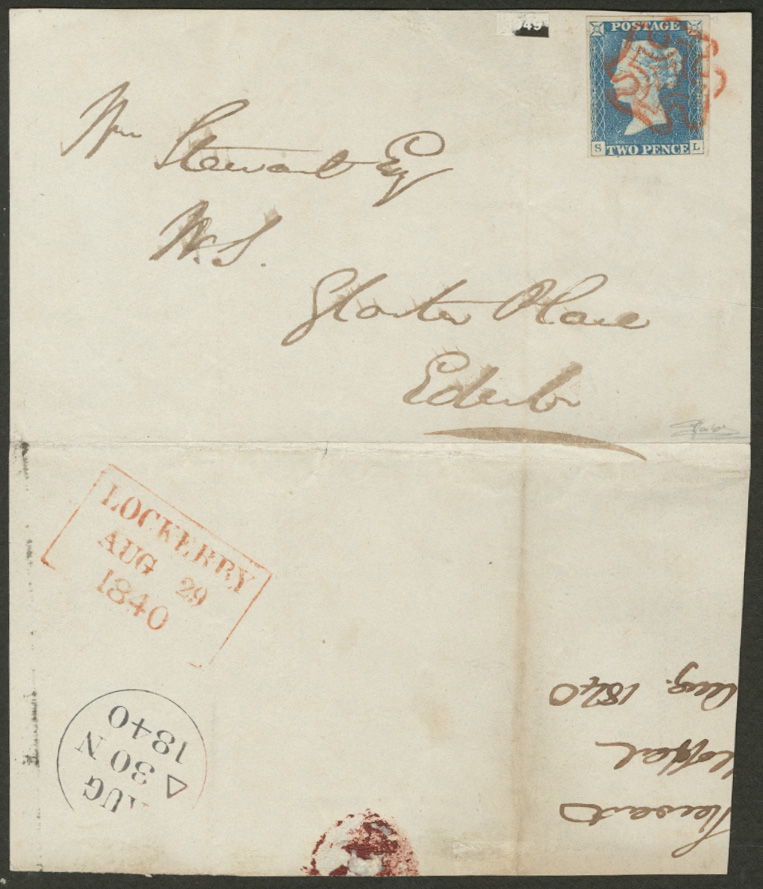 49
POSTAGE
S TWO PENCE L
Wm Stewart Esq
W.S.
Gloster Place
Edinbr
LOCKERBY
AUG 29
1840
AUG
30 N
1840
Stewart
Moffat
Aug. 1840